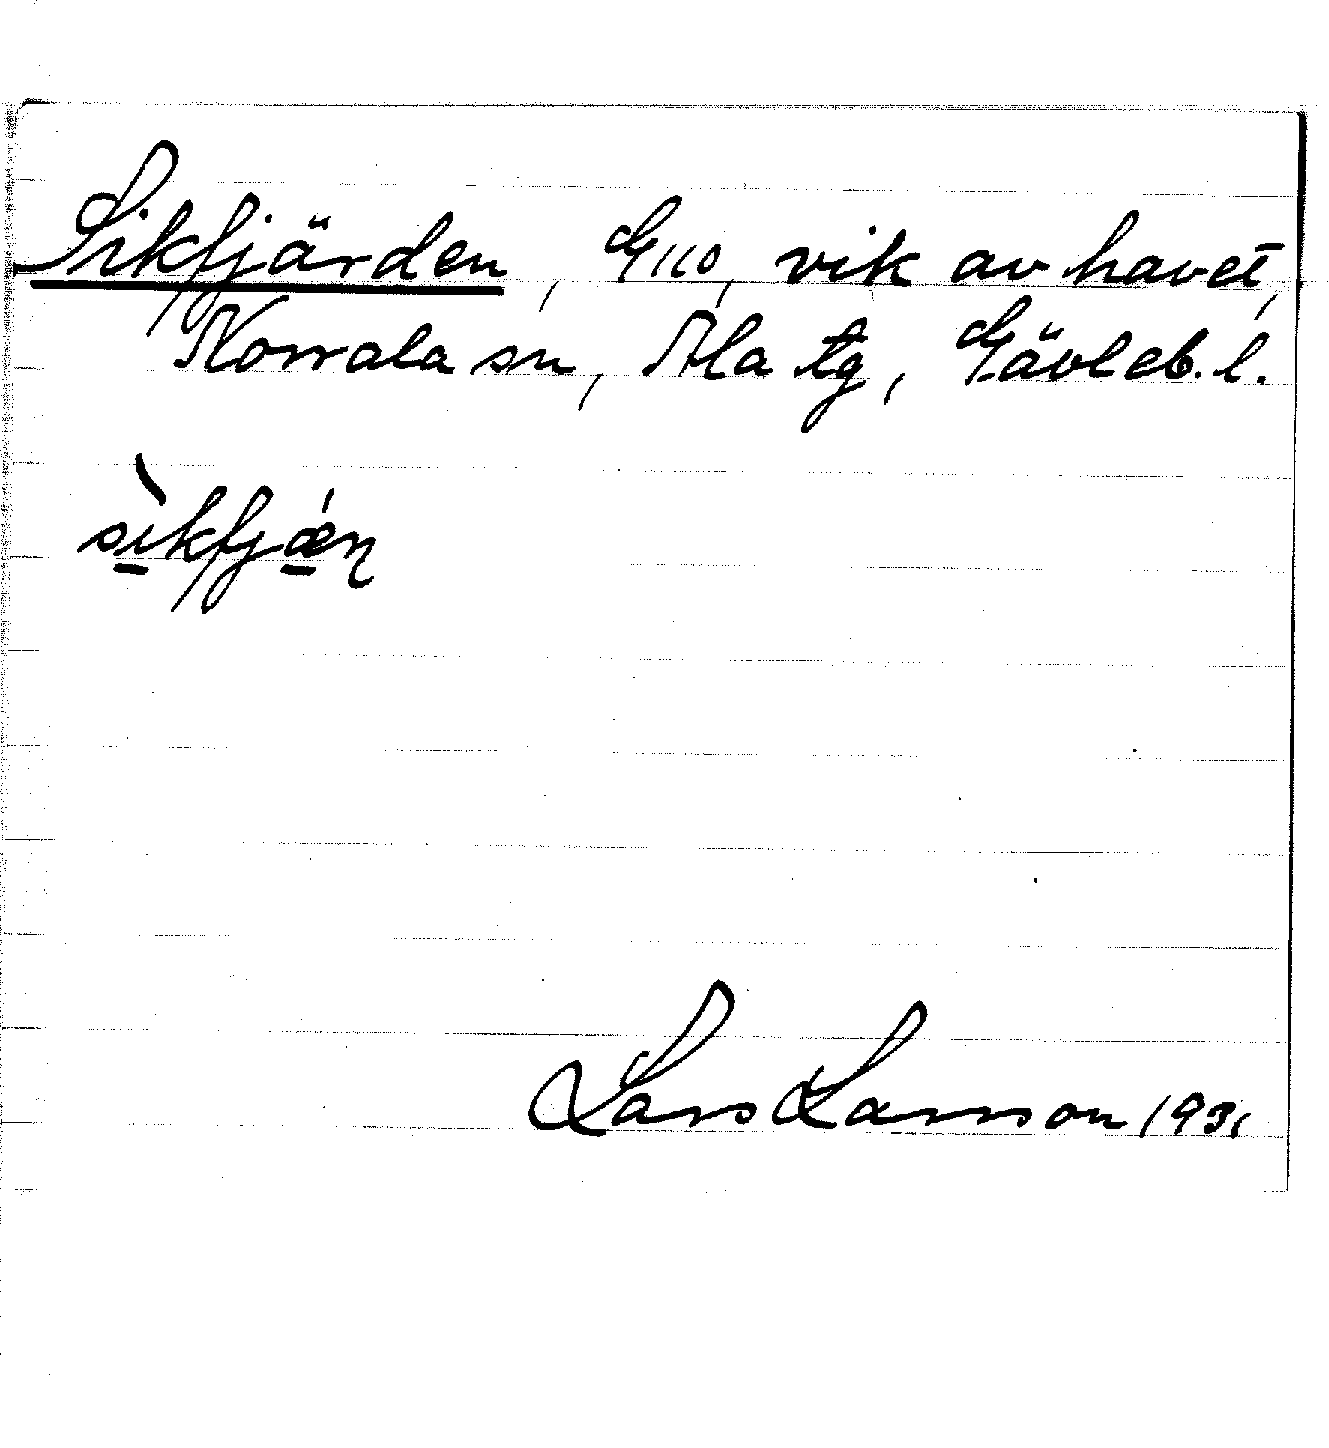 Sikfjärden, G110, vik av havet,
Norrala sn, Ala tg, Gävleb. l.
sìkfjǽɳ
Lars Larsson 1931